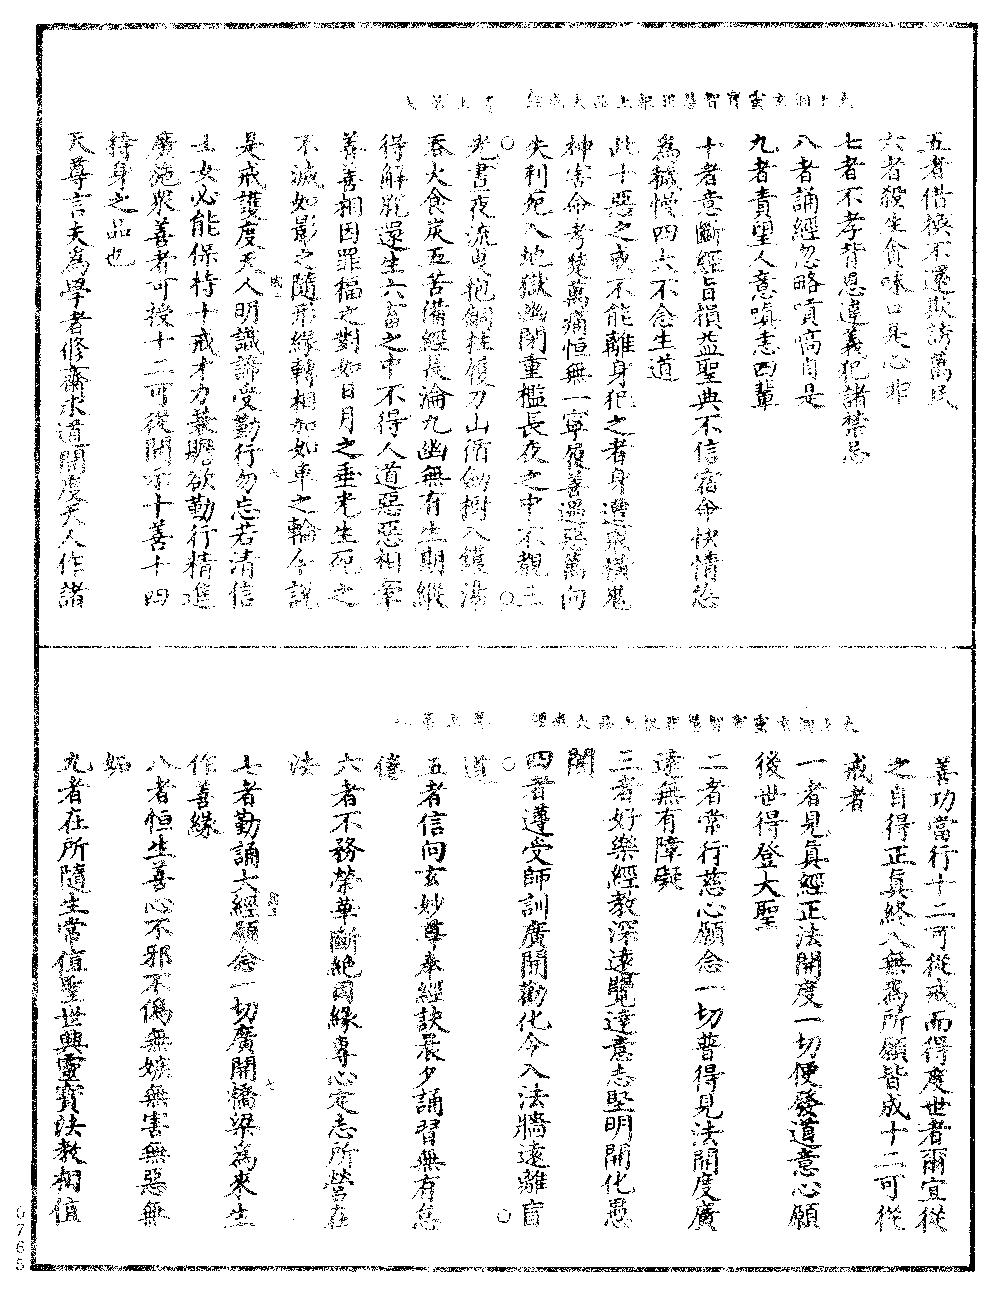 太上洞玄靈寶智慧罪根上品大戒經 卷上第六
五者借換不還欺誘萬民
六者殺生貪味口是心非
七者不孝背恩違義犯諸禁忌
八者誦經忽略貢高自是
九者責望人意嗔恚四輩
十者意斷經旨損益聖典不信宿命快情恣
為穢慢四大不念生道
此十惡之戒不能離身犯之者身遭殃橫鬼
神害命考楚萬痛恒無一寧履善遇惡萬向
失利死入地獄幽閉重檻長夜之中不覩三
光晝夜流曳抱銅柱履刀山循劔樹入鑊湯
吞火食炭五苦備經長淪九幽無有生期縱
得解脫還生六畜之中不得人道惡惡相牽
善善相因罪福之對如日月之垂光生死之
不滅如影之隨形緣轉相加如車之輪今說
是戒護度天人明識諦受勤行勿忘若清信
士女必能保持十戒才力兼贍欲勤行精進
廣施眾善者可授十二可從開示十善十四
持身之品也
天尊言夫為學者修齋求道開度天人作諸
太上洞玄靈寶智慧罪根上品大戒經 卷上第七
善功當行十二可從戒而得度世者爾宜從
之自得正真終入無為所願皆成十二可從
戒者
一者見真經正法開度一切便發道意心願
後世得登大聖
二者常行慈心願念一切普得見法開度廣
遠無有障礙
三者好樂經教深遠覽達意志堅明開化愚
闇
四者遵受師訓廣開勸化令入法牆遠離盲
道
五者信向玄妙尊奉經訣晨夕誦習無有怠
倦
六者不務榮華斷絕因緣專心定志所營在
法
七者勤誦大經願念一切廣開橋梁為來生
作善緣
八者恒生善心不邪不偽無嫉無害無惡無
妬
九者在所隨生常值聖世與靈寶法教相值
0765